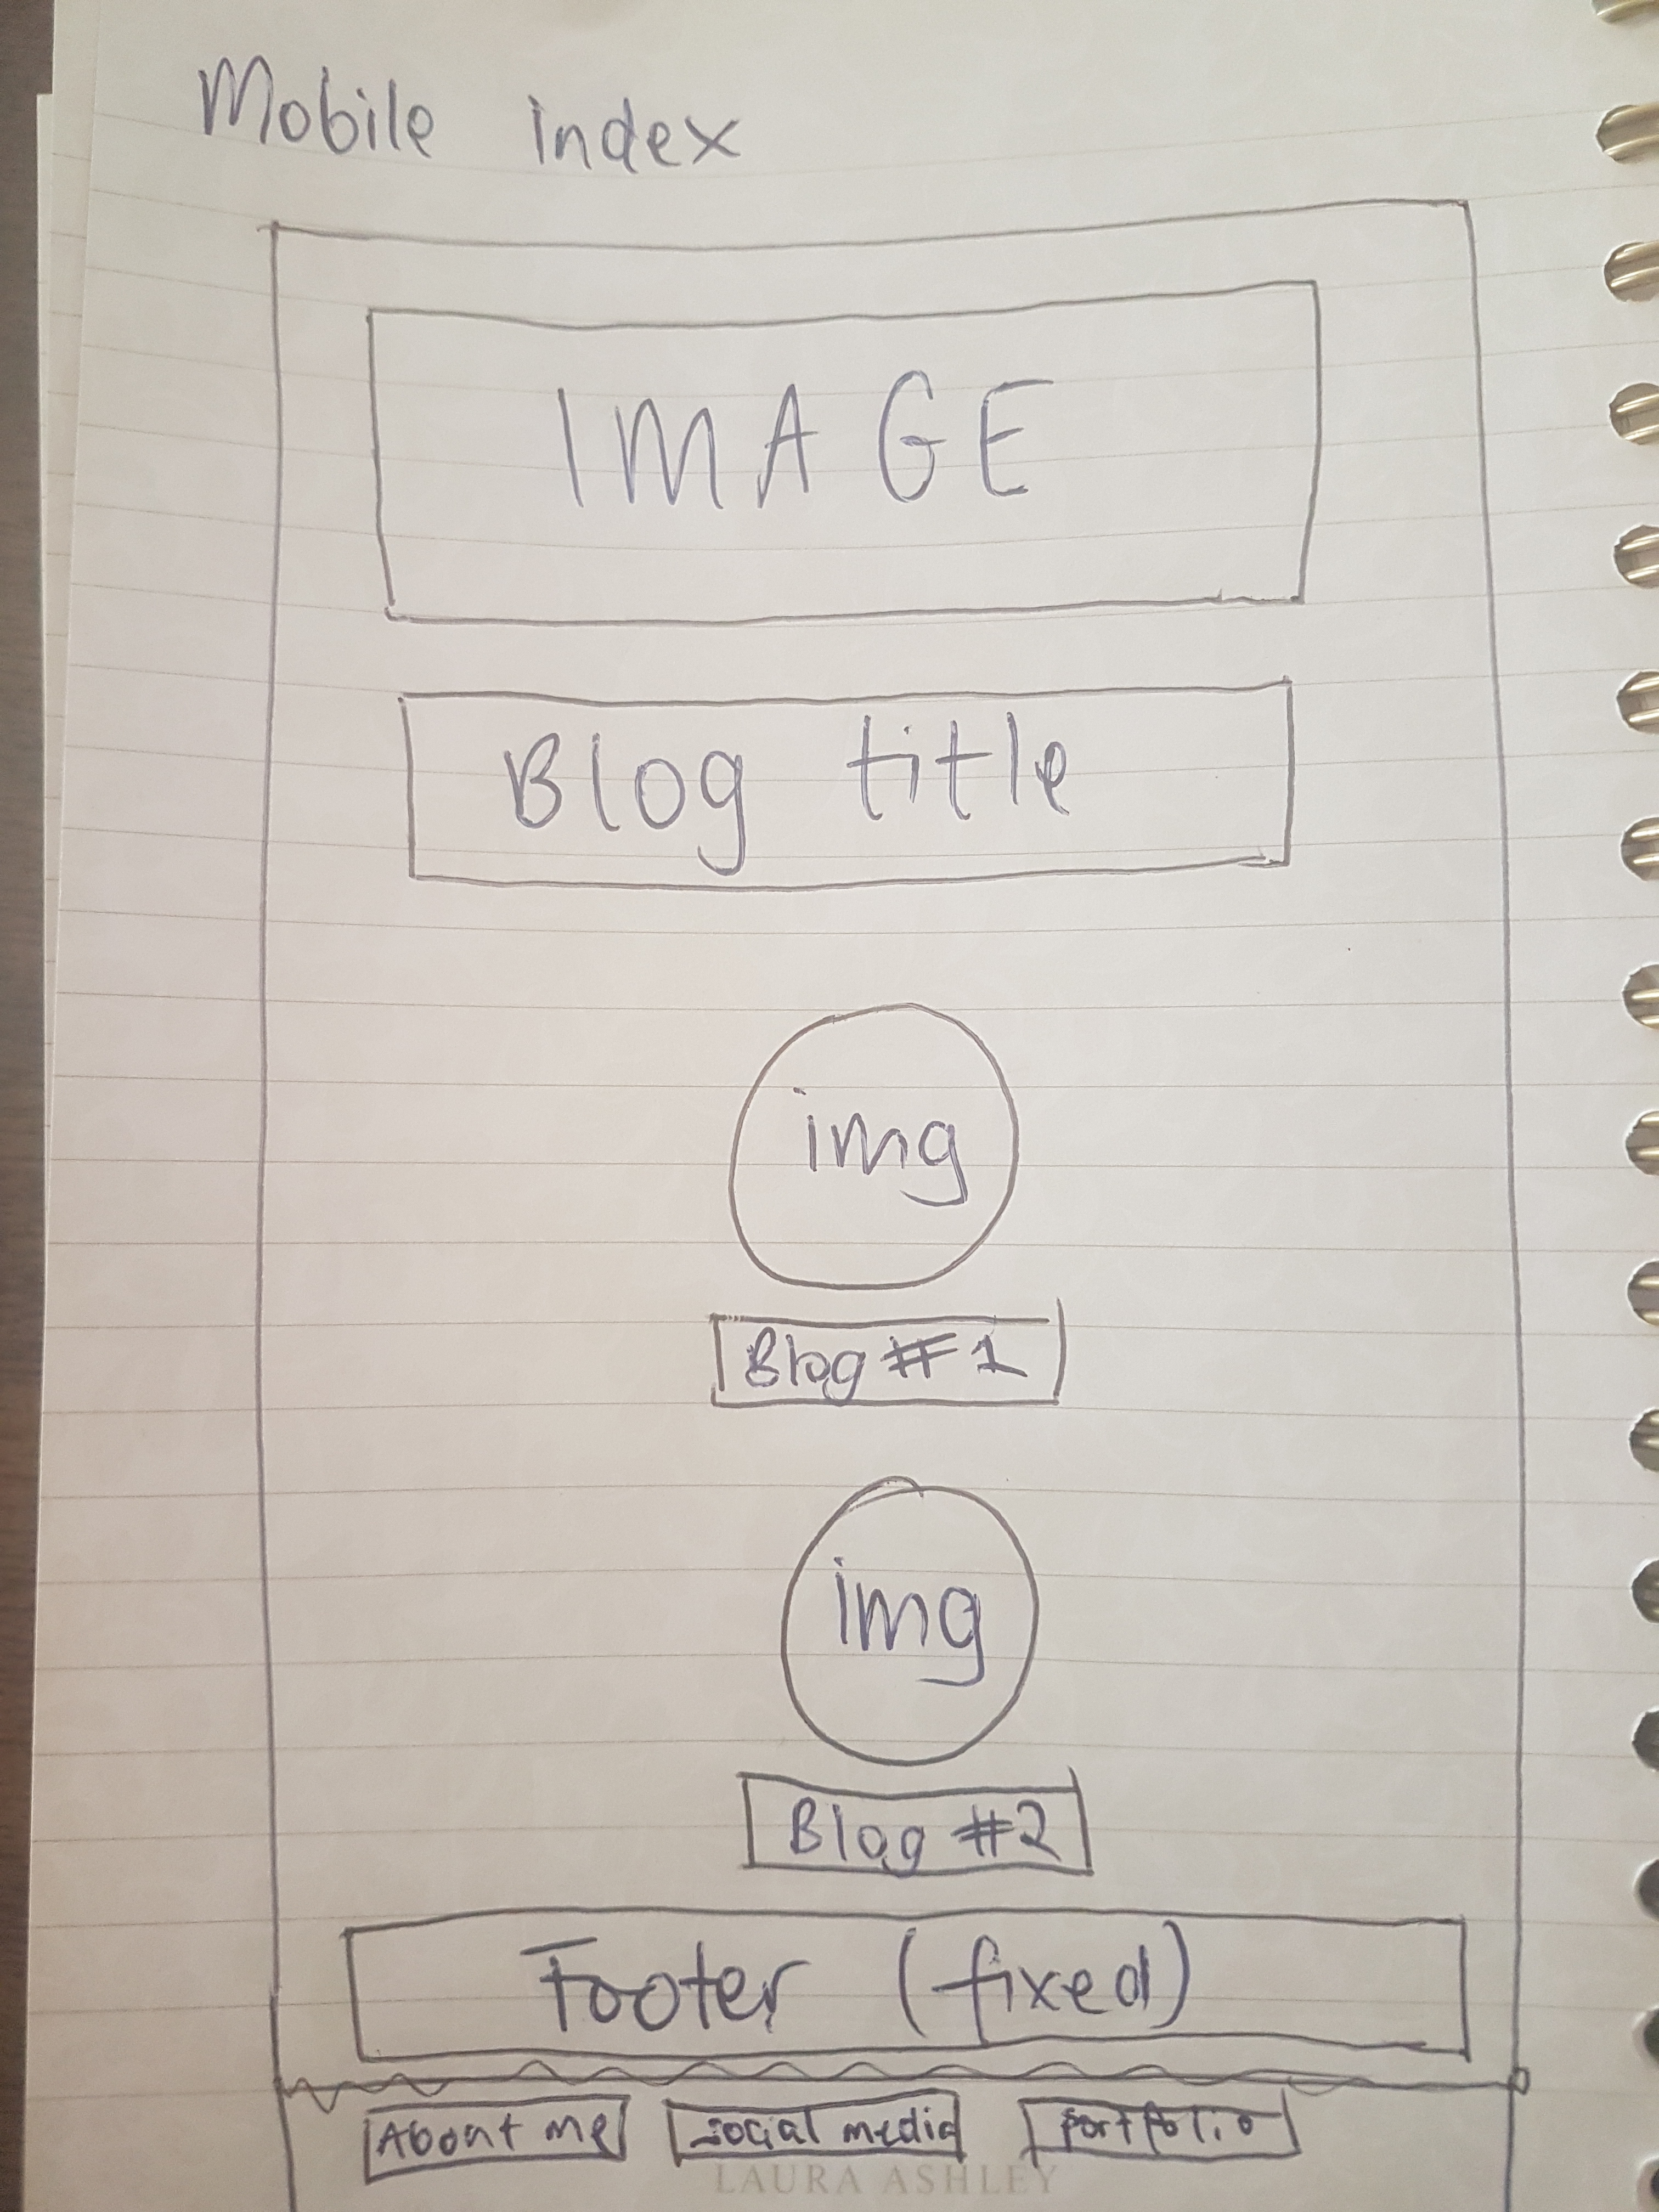 Mobile index
IMAGE
Blog title
img
Blog #1
img
Blog #2
Footer (fixed)
About me social media portfolio
LAURA ASHLEY